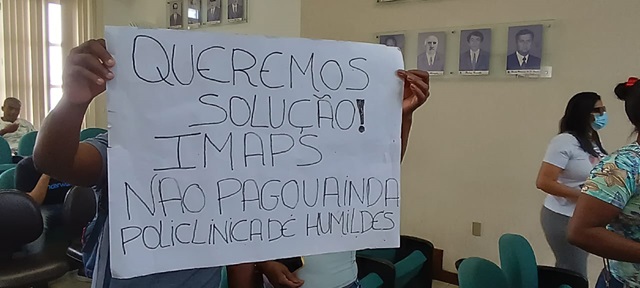 QUEREMOS
SOLUÇÃO!
IMAPS
NÃO PAGOU AINDA
POLICLÍNICA DE HUMILDES